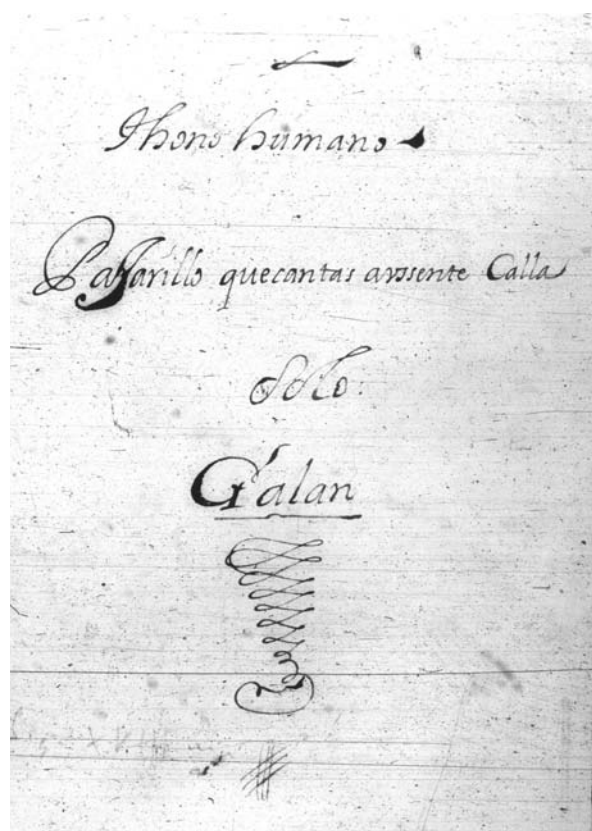 Thono humano
Pajarillo que cantas aussente Calla
Solo
Galan